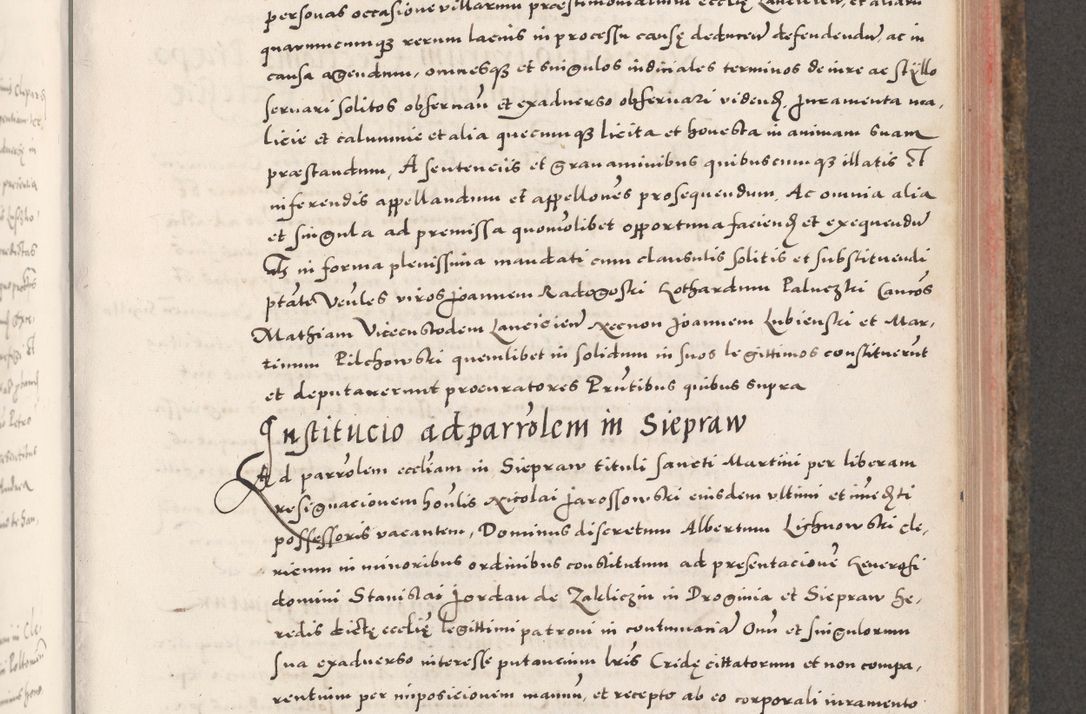 personas occasione villarum præstimonialium ecclię Lancicieñ, et aliarū
quarumcumqȝ rerum lacius in processu causę deducēn defendendū, ac in
causa agendum, omnesqȝ et singulos iudiciales terminos de iure ac stÿllo
seruari solitos obseruañ et exaduerso obseruari videnđ. Juramenta ma,
licie et calumnie et alia quecumqȝ licita et honesta in animam suam
præstandum, A sentenciis et grauaminibus quibuscumqȝ illatis et
inferendis appellandum et appellones prosequendum, Ac omnia alia
et singula ad premissa quouolibet opportuna faciendđ et exequendū
in forma plenissima mandati cum clausulis solitis et substituendi
ptāte Veñles viros Joannem Radogoski Lothardum Paluczki Cancōs
Mathiam Vicecustodem Lancicieñ Necnon Joannem Lubienski et Mar,
tinum Pilchowski quemlibet in solidum in suos legittimos constituerūt
et deputauerunt procuratores Prñtibus quibus supra
Institucio ad parrōlem in Siepraw
Ad parrōlem eccliam in Siepraw tituli sancti Martini per liberam
resignacionem honlis Nicolai Jarossowski eiusdem vltimi et immedti
possessoris vacantem, Dominus discretum Albertum Lichnowski cle,
ricum in minoribus ordinibus constitutum ad presentacionē Generosi
domini Stanislai Jordan de Zakliczin in Droginia et Siepraw he,
redis dictę ecclię legittimi patroni in contumaciā Omī et singulorum
sua exaduerso interesse putancium lrīs Cridę cittatorum et non compa,
rentium per imposicionem manuū, et recepto ab eo corporali iuramento